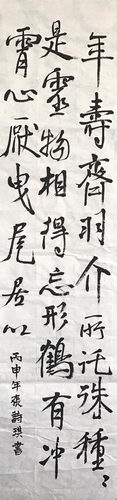 年壽齊羽介所託殊種種
是靈物相得忘形鶴有沖
霄心厭曳尾居以
丙申年袁詩琪書